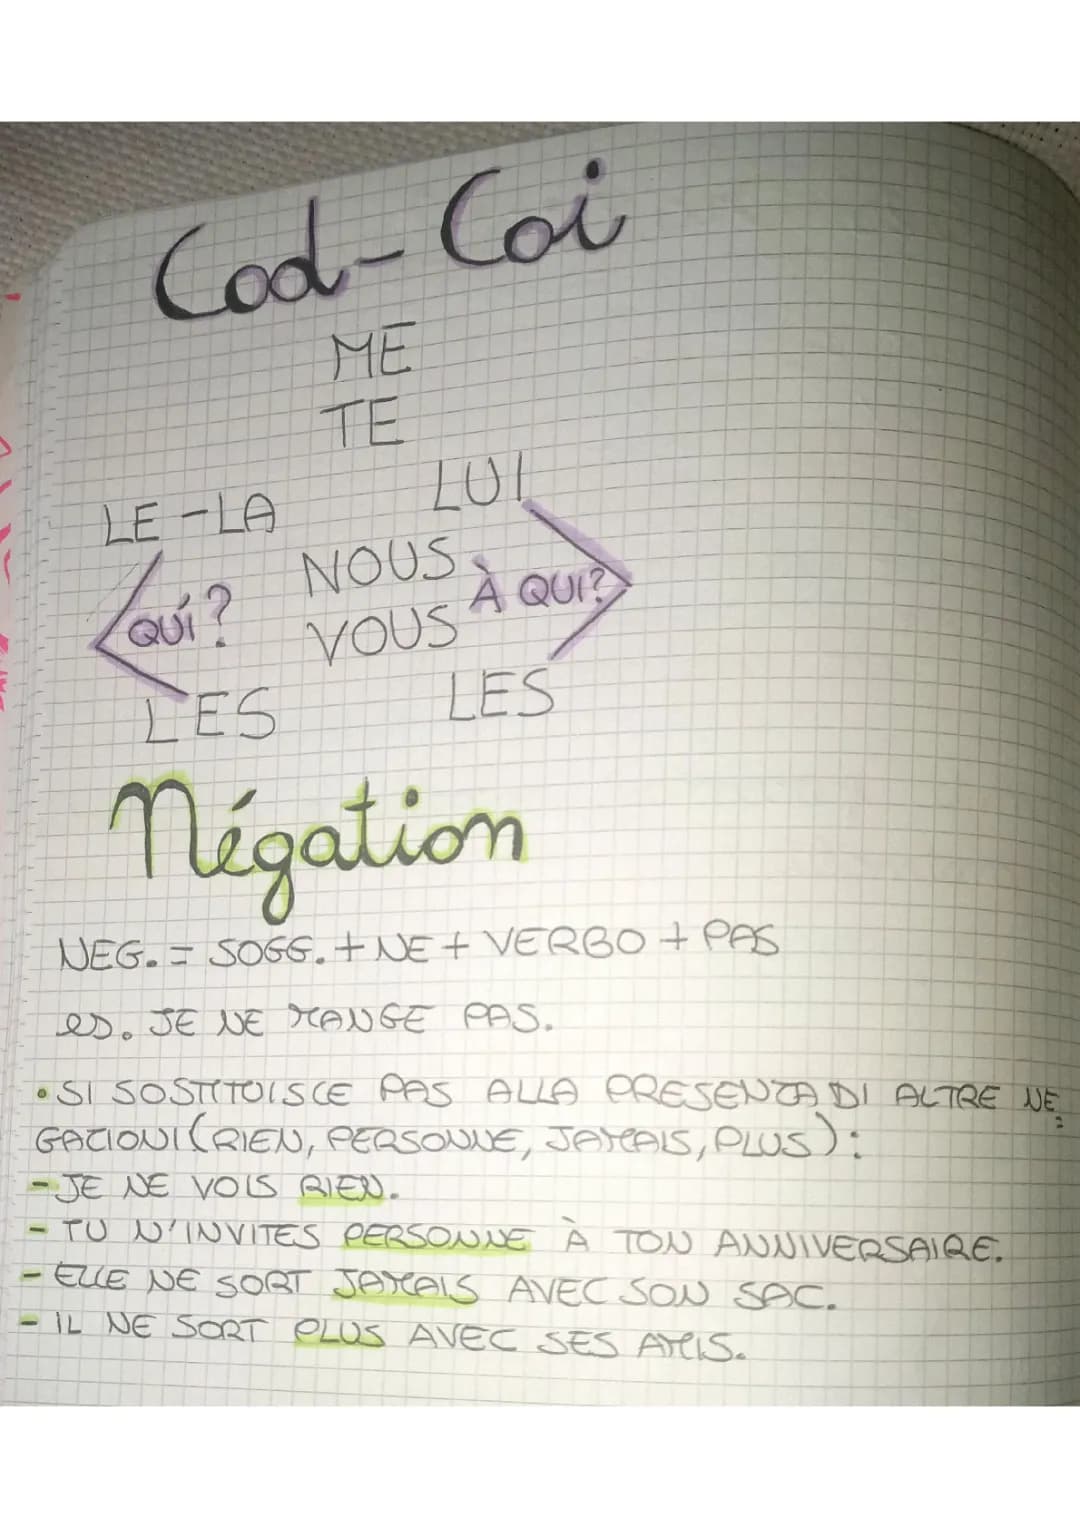 Cod-Coi
ME
TE
LE-LA LUI
NOUS
QUI? À QUI?
VOUS
LES LES
Négation
NEG. = SOGG. + NE + VERBO + PAS
es. JE NE MANGE PAS.
• SI SOSTITUISCE PAS ALLA PRESENZA DI ALTRE NE=
GAZIONI (RIEN, PERSONNE, JAMAIS, PLUS):
- JE NE VOIS RIEN.
- TU N'INVITES PERSONNE À TON ANNIVERSAIRE.
- ELLE NE SORT JAMAIS AVEC SON SAC.
- IL NE SORT PLUS AVEC SES AMIS.